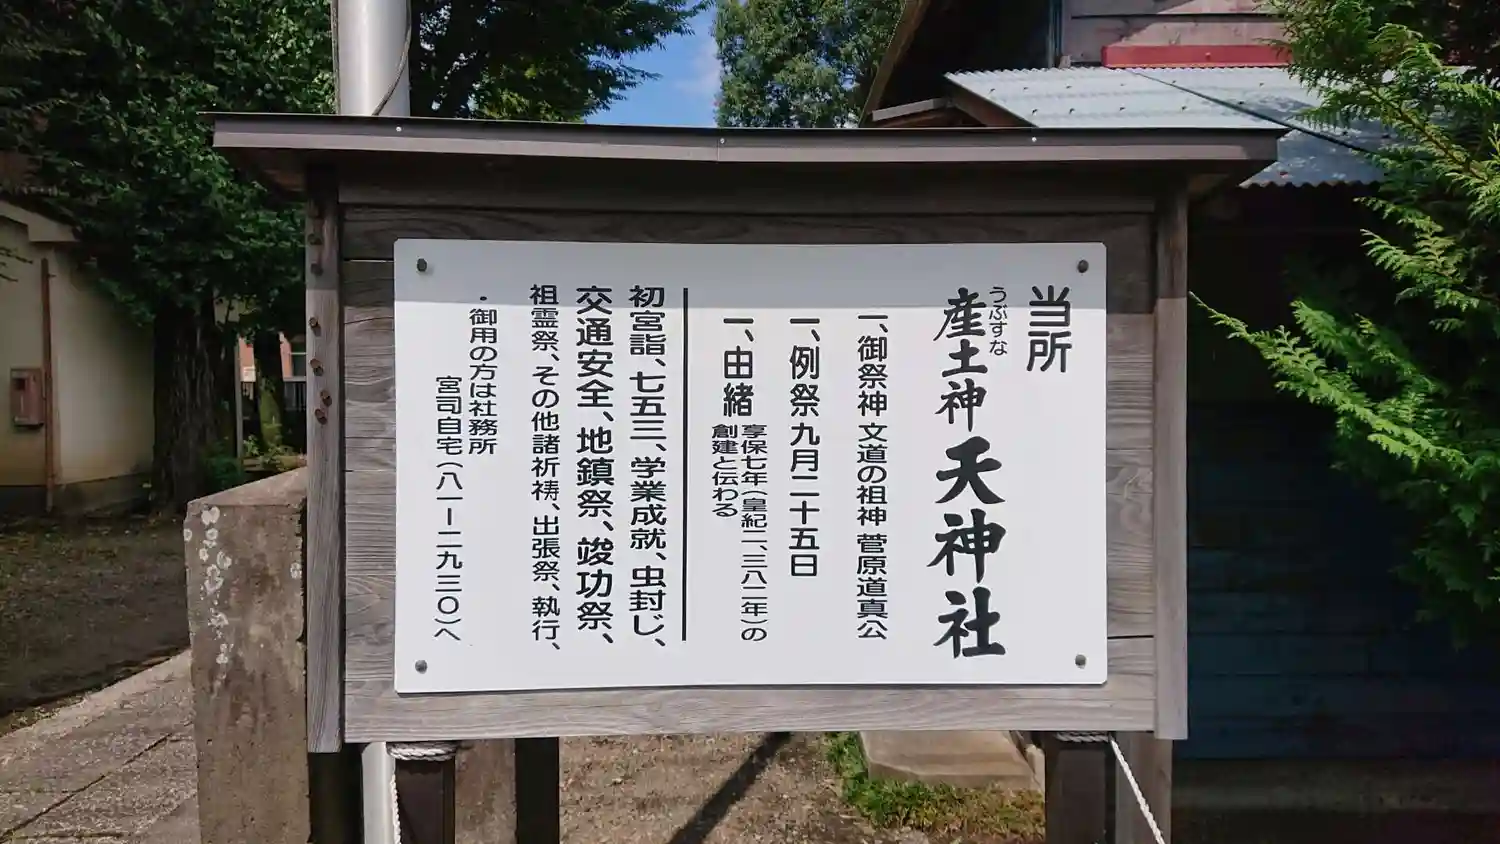 当所
産土神 天神社
うぶすな
一、御祭神 文道の祖神 菅原道真公
一、例祭 九月二十五日
一、由緒 享保七年(皇紀二、三八二年)の
創建と伝わる
初宮詣、七五三、学業成就、虫封じ、
交通安全、地鎮祭、竣功祭、
祖霊祭、その他諸祈祷、出張祭、執行、
・御用の方は社務所
宮司自宅(八一ー二九三〇)へ